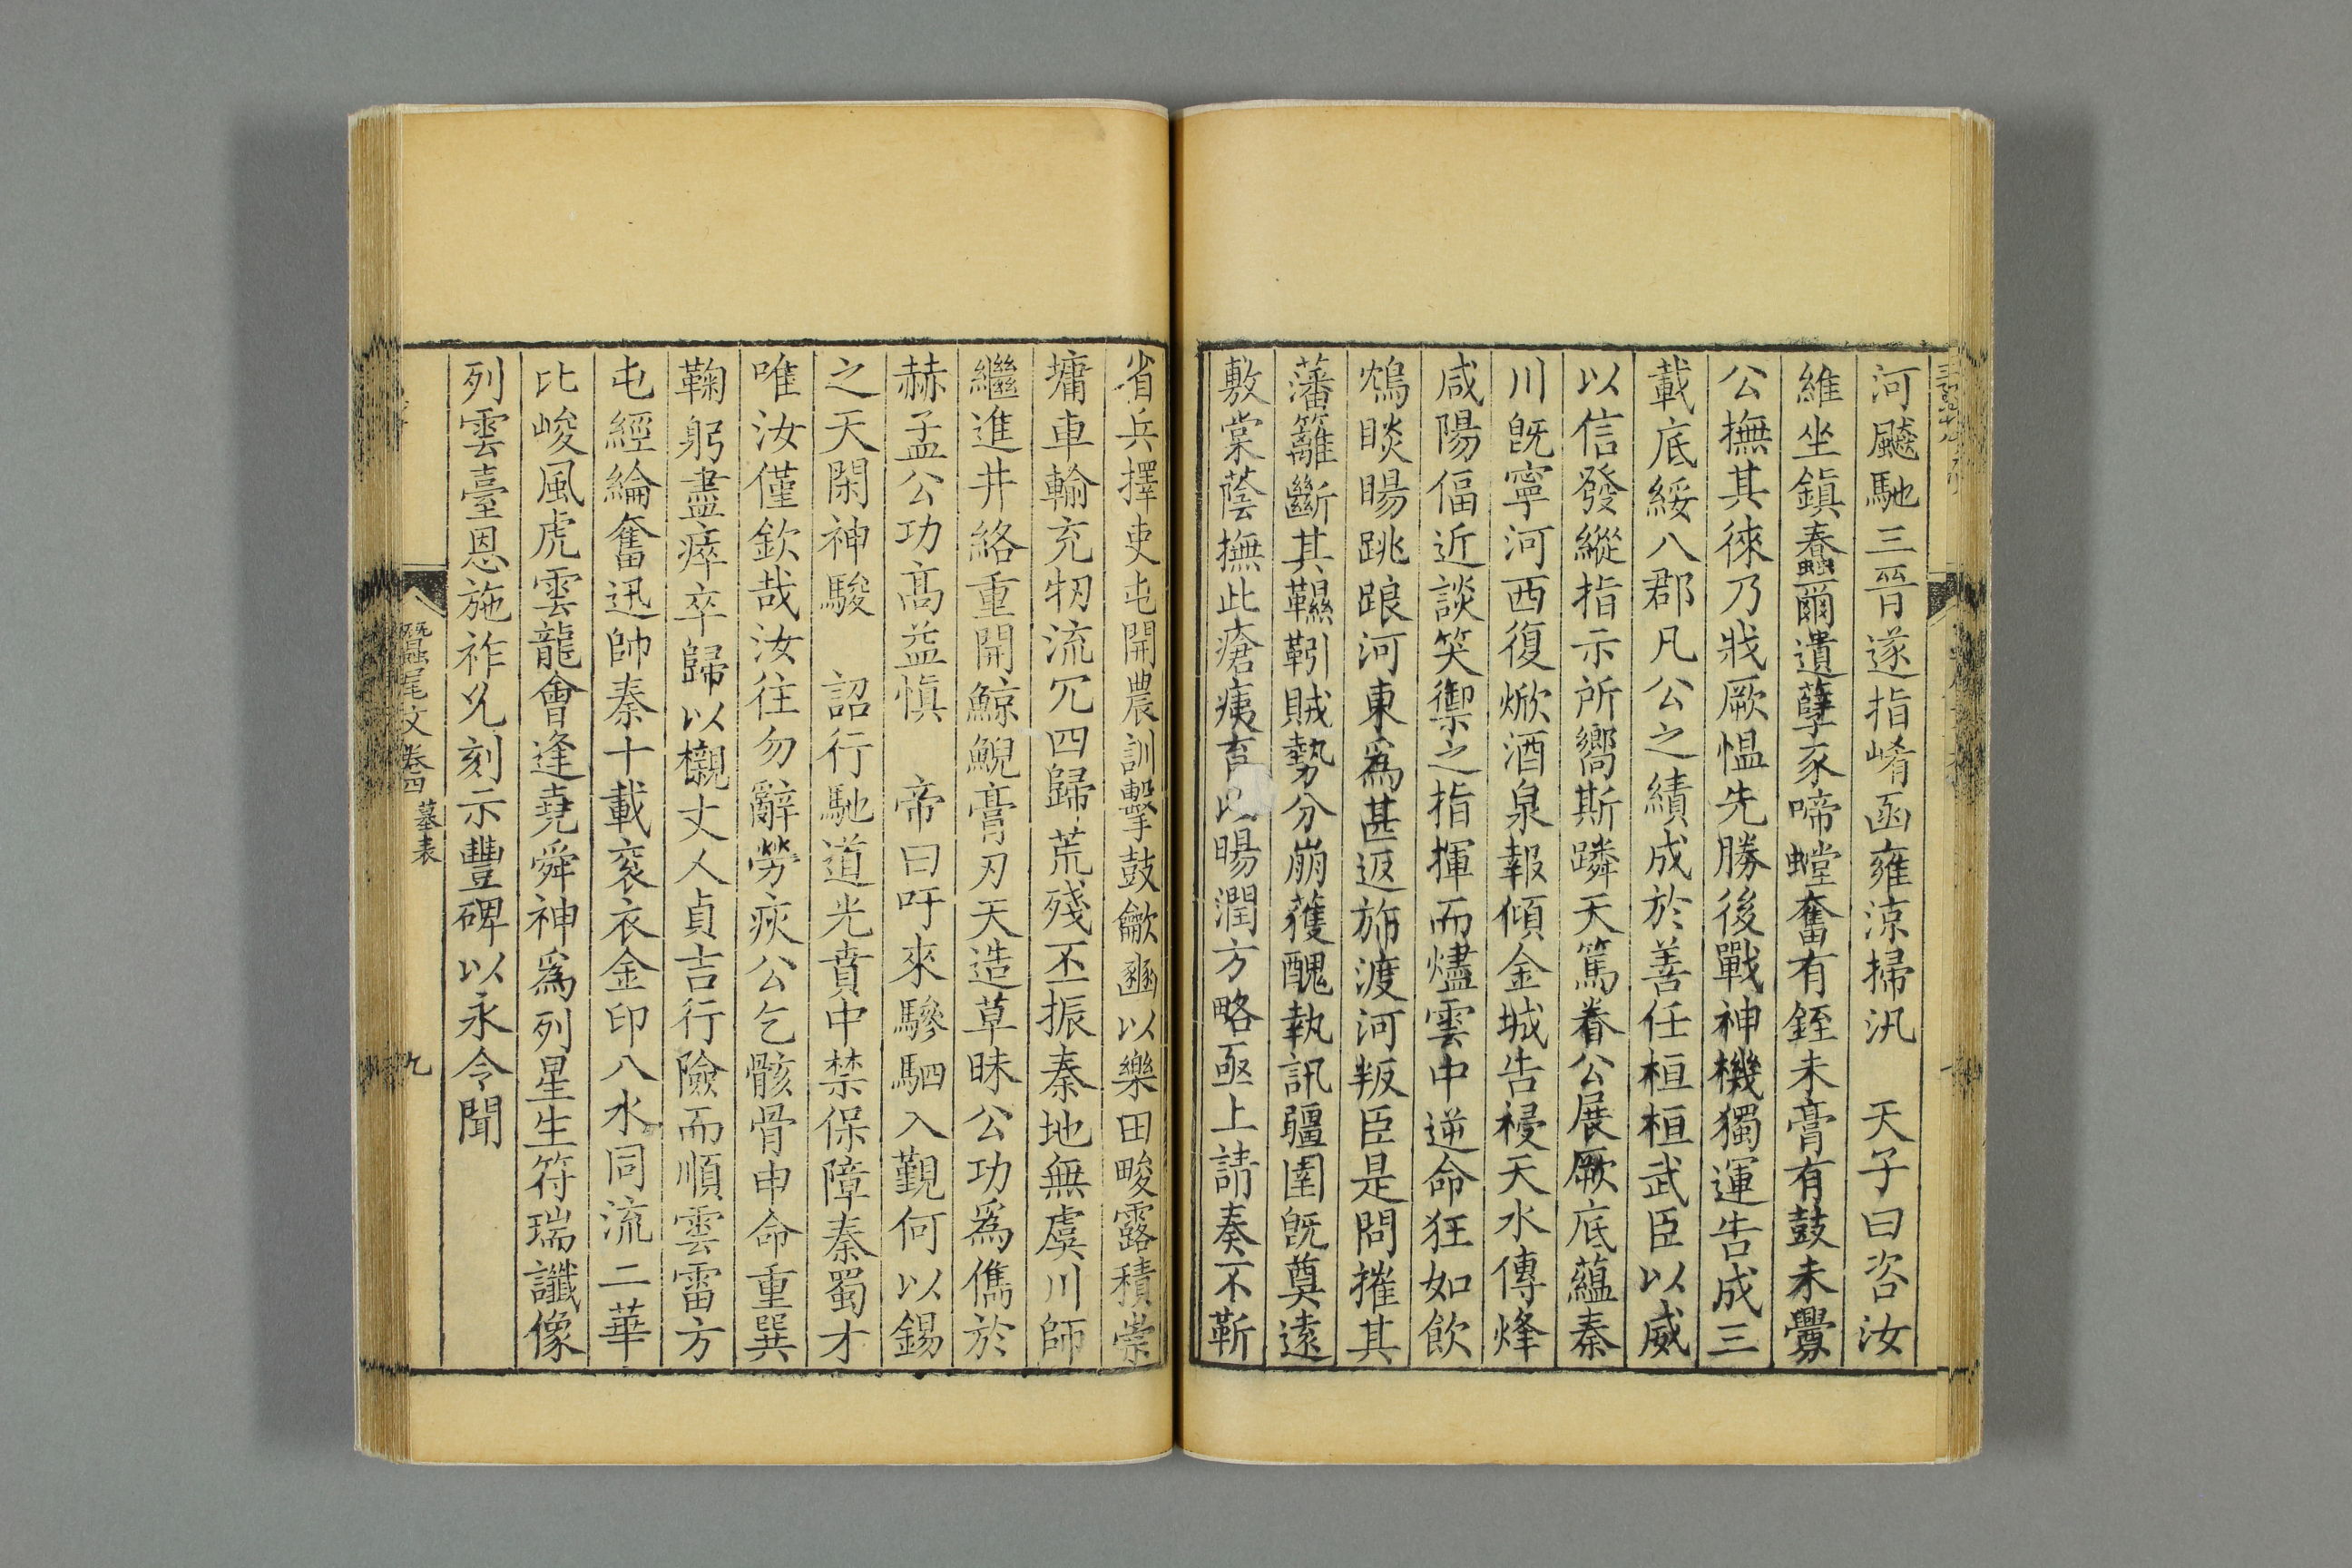 河飈馳三晉遂指崤函雍涼掃汛　天子曰咨汝
維坐鎮蠢爾遺孽豕啼螳奮有銍未膏有鼓未釁
公撫其徠乃戕厥慍先勝後戰神機獨運告成三
載底綏八郡凡公之績成於善任桓桓武臣以威
以信發縱指示所嚮斯蹸天篤眷公展厥底蘊秦
川旣寧河西復焮酒泉報傾金城告祲天水傳烽
咸陽偪近談笑禦之指揮而燼雲中逆命狂如飲
鴆睒暘跳踉河東爲甚返斾渡河叛臣是問摧其
藩籬斷其鞿靷賊勢分崩蒦醜執訊疆圉旣奠遠
敷棠蔭撫此瘡痍育暘潤方略亟上請奏不靳
省兵擇吏屯開農訓擊鼓龡豳以樂田畯露積崇
墉車輸充牣流冗四歸荒殘丕振秦地無虞川師
繼進井絡重開鯨鯢膏刃天造草昧公功爲儁於
赫孟公功高益愼　帝曰吁來驂駟入覲何以錫
之天閑神駿　詔行馳道光賁中禁保障秦蜀才
唯汝僅欽哉汝往勿辭勞疢公乞骸骨申命重巽
鞠躬盡瘁卒歸以櫬丈人貞吉行險而順雲雷方
屯經綸奮迅帥秦十載袞衣金印八水同流二華
比峻風虎雲龍會逢堯舜神爲列星生符瑞讖像
列雲臺恩施祚㣧刻示豐碑以永令聞
蠶尾文　卷四　墓表　九